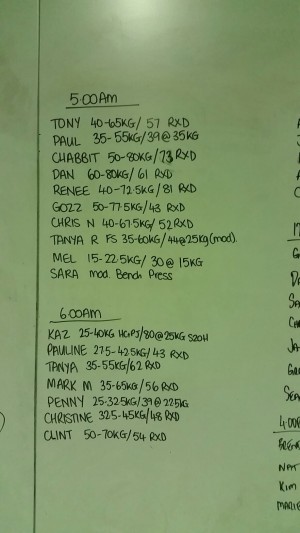 5:00Am
TONY 40-65KG/ 57 RXD
PAUL 35-55KG/39@35KG
CHABBIT 50-80KG/73 RXD
DAN 60-80KG/ 61 RXD
RENEE 40-72.5KG/81 RXD
GOZZ 50-77.5KG/43 RXD
CHRIS N 40-67.5KG/ 52 RXD
TANYA R FS 35-60KG/44@25kg(mod)
MEL 15-22.5KG/ 30@ 15KG
SARA mod. Bench Press
6:00Am
KAZ 25-40KG HCPJ/80@25KG S2OH
PAULINE 27.5-42.5KG/ 43 RXD
TANYA 35-55KG/62 RXD
MARK M 35-65KG/56 RXD
PENNY 25-32.5KG/39@22.5KG
CHRISTINE 32.5-45KG/48 RXD
CLINT 50-70KG/54 RXD
NAT
KIM
MARIE